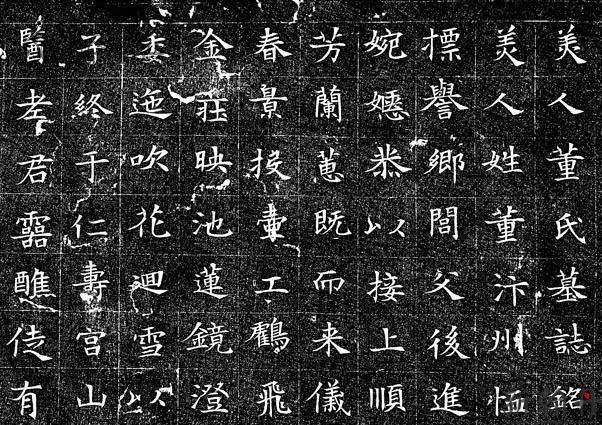 美人董氏墓誌銘
美人姓董汴州恤
摽譽鄉閭父後進
婉嬺恭以接上順
芳蘭蕙既而来儀
春景投壷工鶴飛
金莊映池蓮鏡澄
委迤吹花迴雪以
子終于仁壽宫山
醫老君靈醮徒有